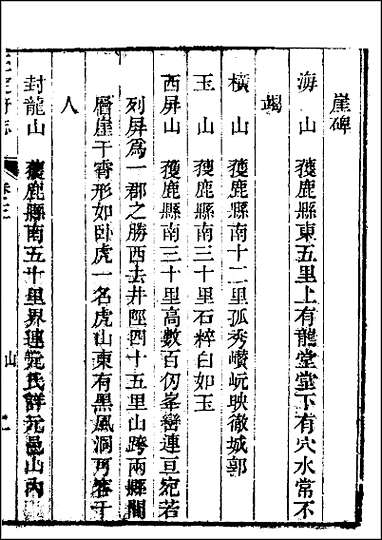 崖碑
海山　獲鹿縣東五里上有龍堂堂下有穴水常不
竭
橫山　獲鹿縣南十二里孤秀巑岏映徹城郭
玉山　獲鹿縣南三十里石粹白如玉
西屏山　獲鹿縣南三十里高數百仞峯巒連亘宛若
列屏爲一郡之勝西去井陘四十五里山跨兩縣間
層崖干霄形如卧虎一名虎山東有黑風洞可容千
人
封龍山　獲鹿縣南五十里界連元氏詳元邑山內
定府志　卷三　山